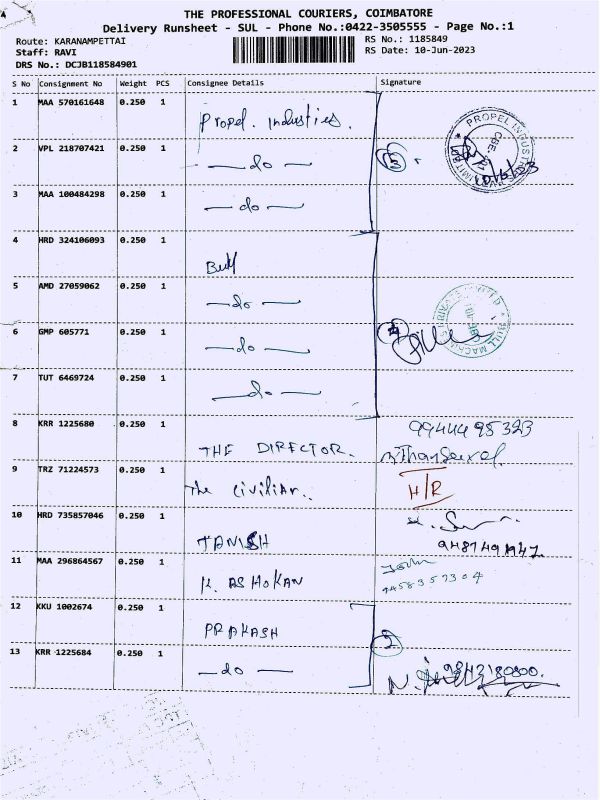 THE PROFESSIONAL COURIERS, COIMBATORE
Delivery Runsheet - SUL - Phone No.:0422-3505555 - Page No.:1
Route: KARANAMPETTAI
RS No.: 1185849
Staff: RAVI
RS Date: 10-Jun-2023
DRS No.: DCJB118584901
S No Consignment No Weight PCS Consignee Details Signature
1 MAA 570161648 0.250 1 Propel. Industies.
PROPEL INDUSTRIES
2 VPL 218707421 0.250 1 —do— 3
3 MAA 100484298 0.250 1 —do—
4 HRD 324106093 0.250 1 Bull
5 AMD 27059062 0.250 1 —do—
6 GMP 605771 0.250 1 —do— 4
BULL MACHINES PRIVATE LIMITED
7 TUT 6469724 0.250 1 —do—
8 KRR 1225680 0.250 1 THE DIRECTOR. 9944495323
9 TRZ 71224573 0.250 1 The Civilian.. H/R
10 HRD 735857046 0.250 1 TANISH
11 MAA 296864567 0.250 1 K. ASHOKAN
9458357304
12 KKU 1002674 0.250 1 PRAKASH 2
13 KRR 1225684 0.250 1 —do— 9843180800.